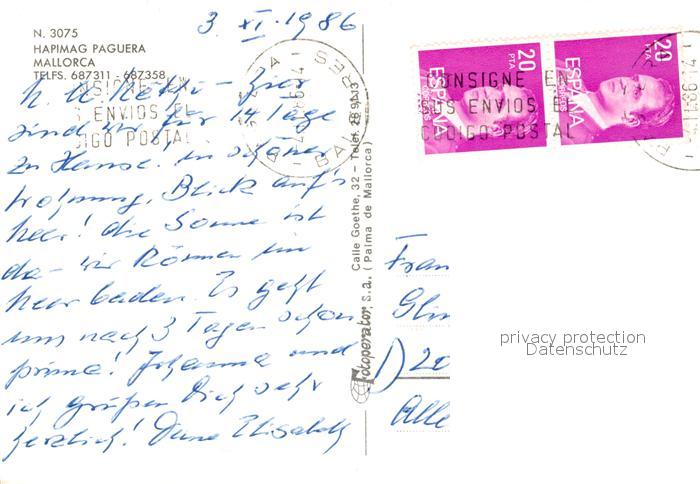 3. XI. 1986
N. 3075
HAPIMAG PAGUERA
MALLORCA
TELFS. 687311 - 687358
hier
sind wir für 14 Tage
zu Hause. In schöner
Wohnung, Blick auf's
Meer! die Sonne ist
da - wir können im
Meer baden. Es geht
uns nach 3 Tagen schon
prima! Johanna und
ich grüßen Dich sehr
herzlich! Deine Elisabeth
Fotoperator, s.a. Calle Goethe, 32 - Telef.
(Palma de Mallorca)
CONSIGNE EN
SUS ENVIOS EL
CODIGO POSTAL
BALEARES
20 PTA
ESPAÑA
CORREOS
20 PTA
ESPAÑA
CORREOS
CONSIGNE EN
SUS ENVIOS EL
CODIGO POSTAL
Frau
D) 20
privacy protection
Datenschutz